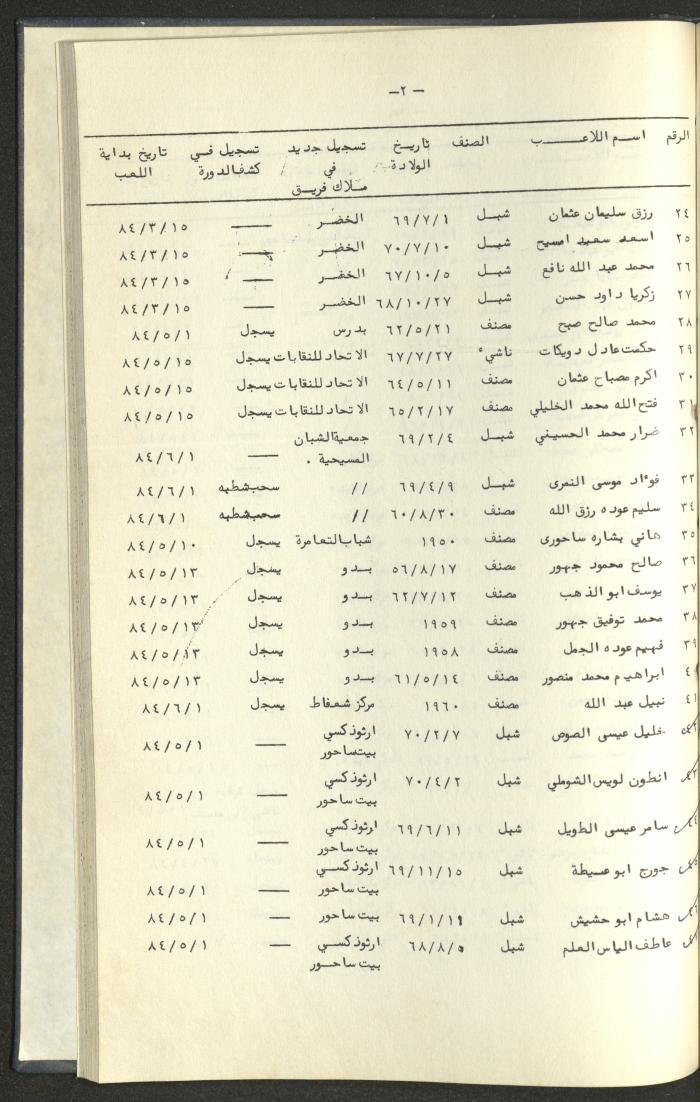 — ٢ —
الرقم اسم اللاعب الصنف تاريخ الولادة تسجيل جديد في ملاك فريق تسجيل في كشف الدورة تاريخ بداية اللعب
٢٤ رزق سليمان عثمان شبل ٦٩/٧/١ الخضر — ٨٤/٣/١٥
٢٥ اسعد سعيد امسيح شبل ٧٠/٧/١٠ الخضر — ٨٤/٣/١٥
٢٦ محمد عبد الله نافع شبل ٦٧/١٠/٥ الخضر — ٨٤/٣/١٥
٢٧ زكريا داود حسن شبل ٦٨/١٠/٢٧ الخضر — ٨٤/٣/١٥
٢٨ محمد صالح صبح مصنف ٦٢/٥/٢١ بدرس يسجل ٨٤/٥/١
٢٩ حكمت عادل دويكات ناشيء ٦٧/٧/٢٧ الاتحاد للنقابات يسجل ٨٤/٥/١٥
٣٠ اكرم مصباح عثمان مصنف ٦٤/٥/١١ الاتحاد للنقابات يسجل ٨٤/٥/١٥
٣١ فتح الله محمد الخليلي مصنف ٦٥/٢/١٧ الاتحاد للنقابات يسجل ٨٤/٥/١٥
٣٢ ضرار محمد الحسيني شبل ٦٩/٢/٤ جمعية الشبان
المسيحية . — ٨٤/٦/١
٣٣ فوءاد موسى النمرى شبل ٦٩/٤/٩ // سحب شطبه ٨٤/٦/١
٣٤ سليم عوده رزق الله مصنف ٦٠/٨/٣٠ // سحب شطبه ٨٤/٦/١
٣٥ هاني بشاره ساحورى مصنف ١٩٥٠ شباب التعامرة يسجل ٨٤/٥/١٠
٣٦ صالح محمود جهور مصنف ٥٦/٨/١٧ بدو يسجل ٨٤/٥/١٣
٣٧ يوسف ابو الذهب مصنف ٦٢/٧/١٢ بدو يسجل ٨٤/٥/١٣
٣٨ محمد توفيق جهور مصنف ١٩٥٩ بدو يسجل ٨٤/٥/١٣
٣٩ فهيم عوده الجمل مصنف ١٩٥٨ بدو يسجل ٨٤/٥/١٣
ابراهيم محمد منصور مصنف ٦١/٥/١٤ بدو يسجل ٨٤/٥/١٣
٤١ نبيل عبد الله مصنف ١٩٦٠ مركز شعفاط يسجل ٨٤/٦/١
خليل عيسى الصوص شبل ٧٠/٢/٧ ارثوذكسي
بيت ساحور — ٨٤/٥/١
انطون لويس الشوملي شبل ٧٠/٤/٢ ارثوذكسي
بيت ساحور — ٨٤/٥/١
سامر عيسى الطويل شبل ٦٩/٦/١١ ارثوذكسي
بيت ساحور — ٨٤/٥/١
جورج ابو عيطة شبل ٦٩/١١/١٥ ارثوذكسي
بيت ساحور — ٨٤/٥/١
هشام ابو حشيش شبل ٦٩/١/١٩ بيت ساحور — ٨٤/٥/١
عاطف الياس العلم شبل ٦٨/٨/٥ ارثوذكسي — ٨٤/٥/١
بيت ساحور